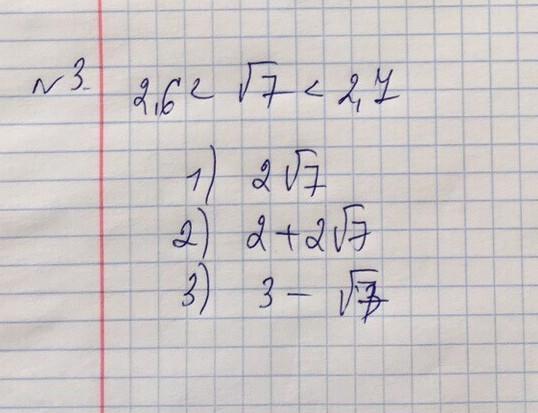 №3.
2,6 < √7 < 2,7
1) 2√7
2) 2+2√7
3) 3 − √7